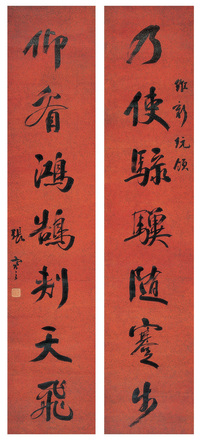 維新
乃使騄驥隨蹇步
仰看鴻鵠刺天飛
張